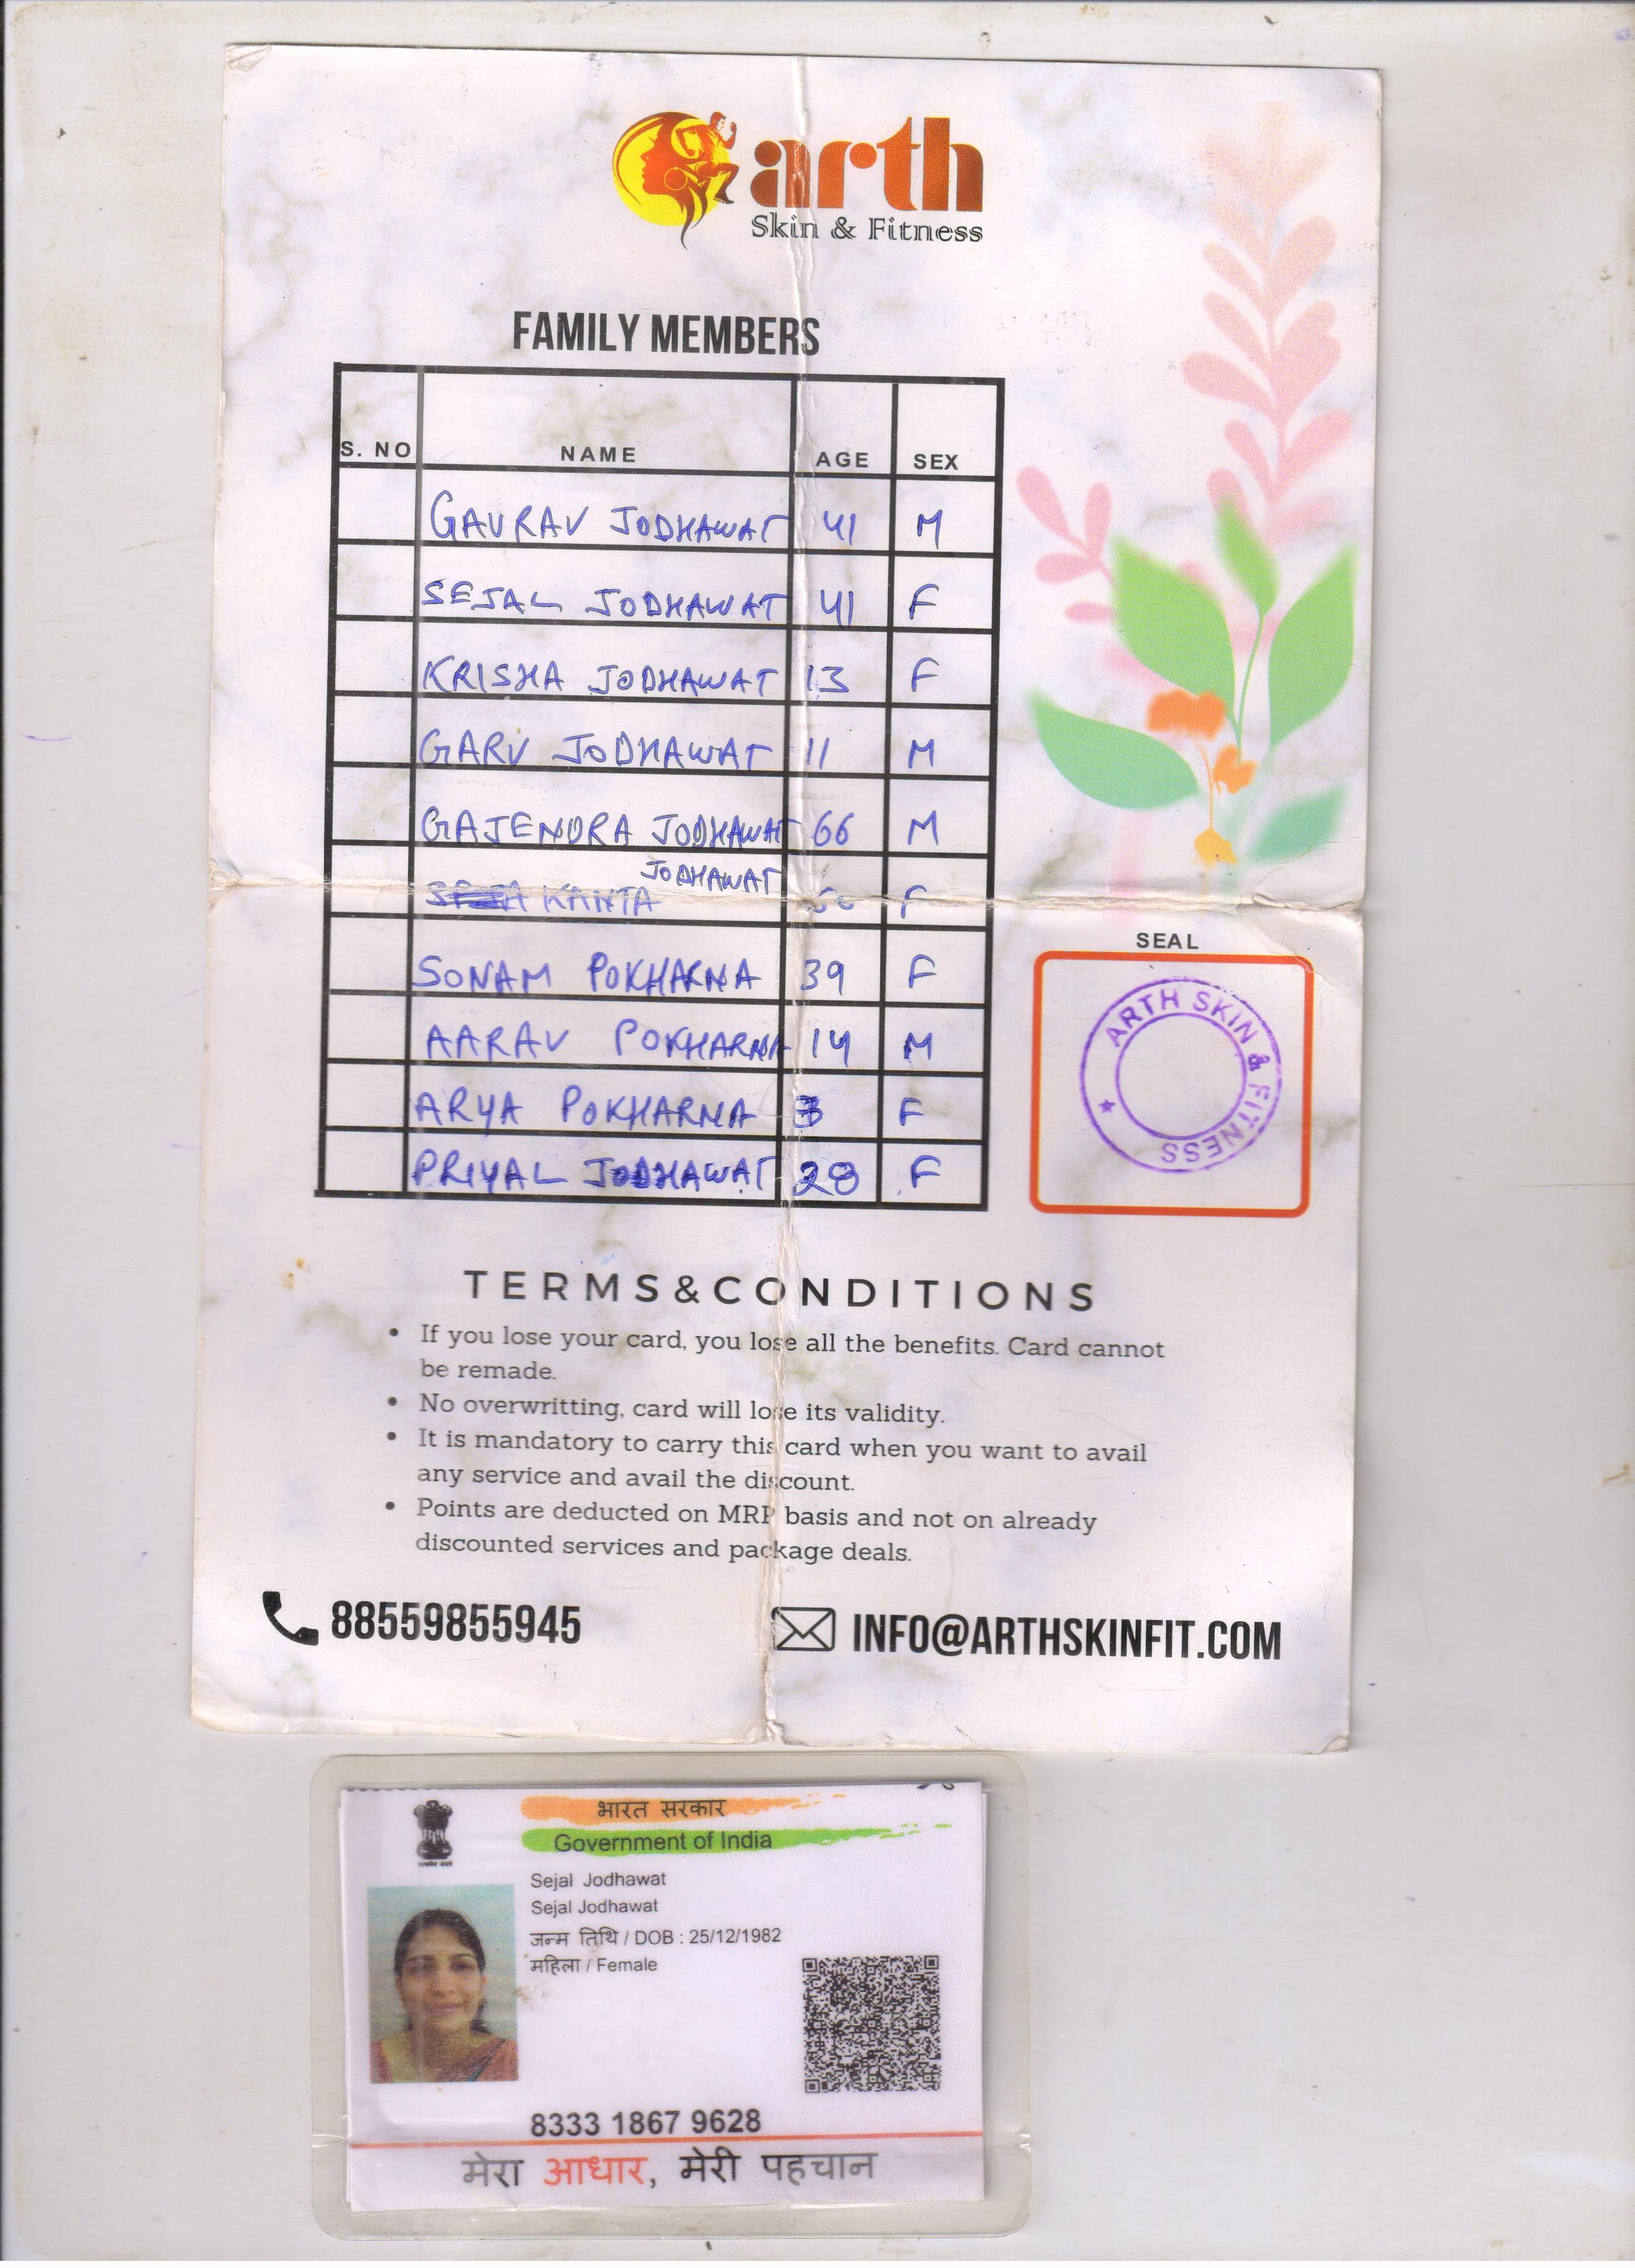 arth
Skin & Fitness
FAMILY MEMBERS
S. NO NAME AGE SEX
GAURAV JODHAWAT 41 M
SEJAL JODHAWAT 41 F
KRISHA JODHAWAT 13 F
GARV JODHAWAT 11 M
GAJENDRA JODHAWAT 66 M
JODHAWAT
KANTA F
SONAM POKHARNA 39 F
AARAV POKHARNA 14 M
ARYA POKHARNA 3 F
PRIYAL JODHAWAT 28 F
SEAL
ARTH SKIN & FITNESS
TERMS&CONDITIONS
• If you lose your card, you lose all the benefits. Card cannot
be remade.
• No overwritting, card will lose its validity.
• It is mandatory to carry this card when you want to avail
any service and avail the discount.
• Points are deducted on MRP basis and not on already
discounted services and package deals.
88559855945
INFO@ARTHSKINFIT.COM
भारत सरकार
Government of India
Sejal Jodhawat
Sejal Jodhawat
जन्म तिथि / DOB : 25/12/1982
महिला / Female
8333 1867 9628
मेरा आधार, मेरी पहचान